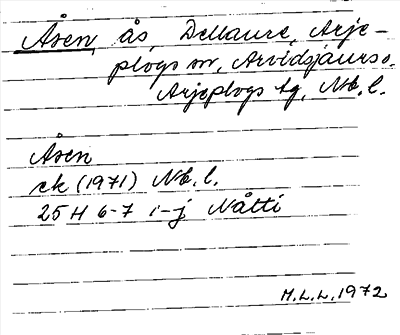 Åsen, ås, Dellaure, Arje-
plogs sn, Arvidsjaurs o.
Arjeplogs tg, Nb. l.
Åsen
ek (1971) Nb. l.
25 H 6-7 i-j Nåtti
M.L.L. 1972